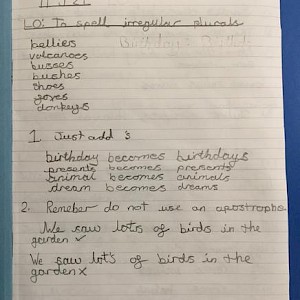 LO: To spell irregular plurals
bellies
volcanoes
busses
bushes
thoes
goves
donkeys
1. Just add s
birthday becomes birthdays
presents becomes presents
animal becomes animals
dream becomes dreams
2. Remeber do not use an apostraphe
We saw lots of birds in the
garden ✓
We saw lot's of birds in the
garden x